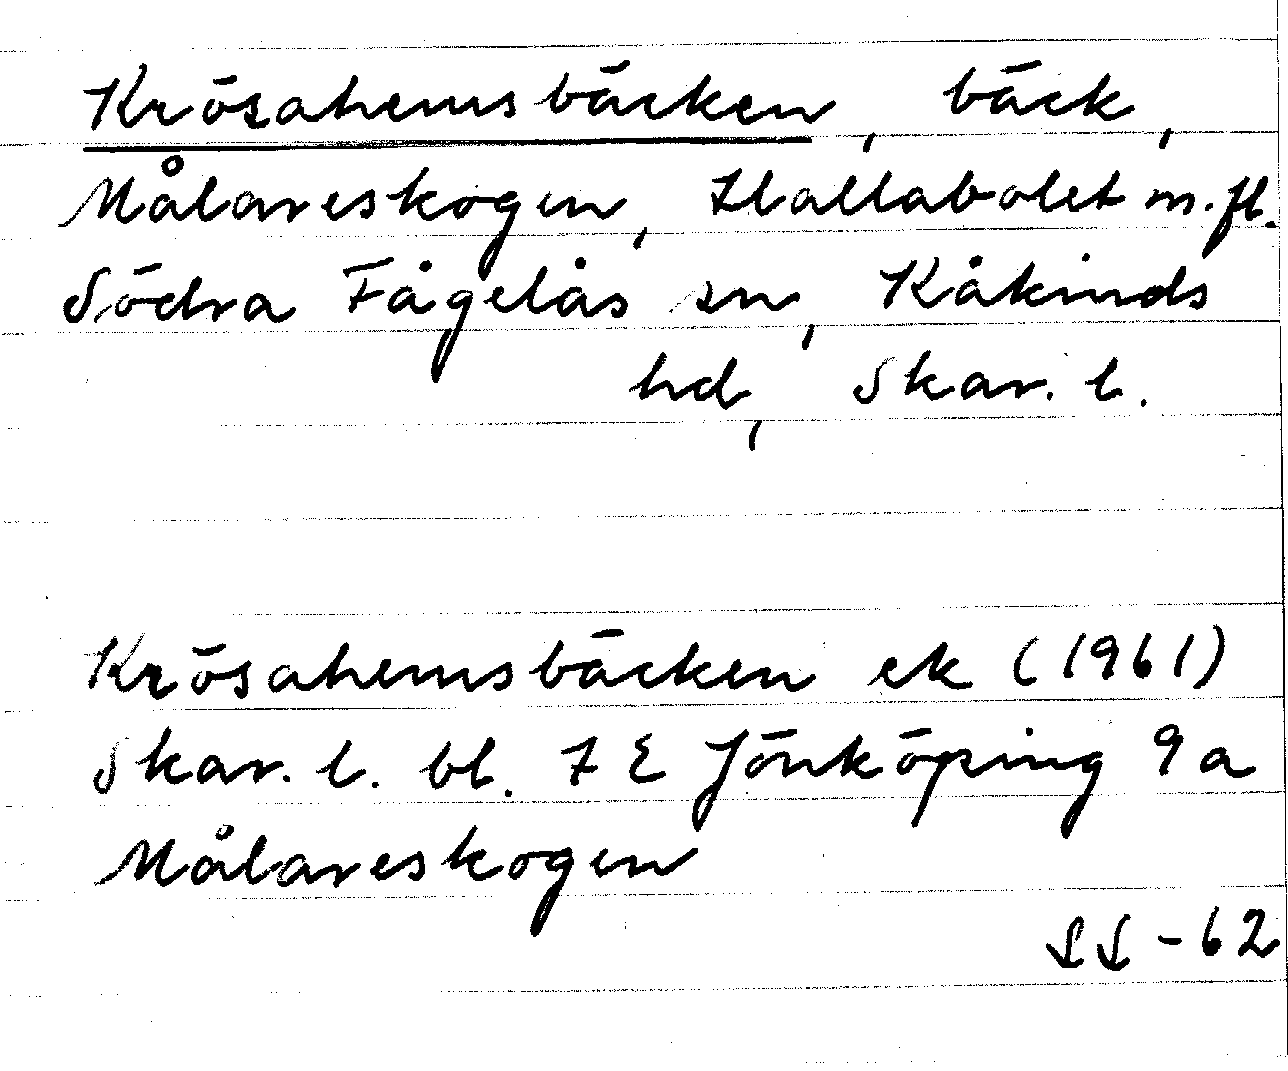 Krösahemsbäcken, bäck,
Målareskogen, Hallabolet m.fl.
Södra Fågelås sn, Kåkinds
hd, Skar. l.
Krösahemsbäcken ek (1961)
Skar. l. bl. 7 E Jönköping 9a
Målareskogen
SS -62